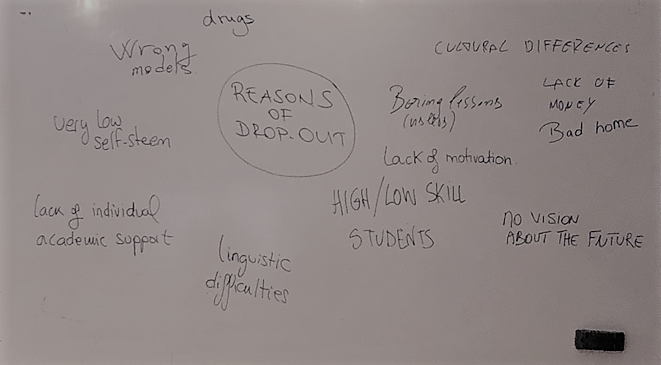 drugs
Wrong
models
CULTURAL DIFFERENCES
REASONS
OF
DROP-OUT
Boring lessons
(useless)
LACK OF
MONEY
Bad home
very low
self-steem
Lack of motivation
HIGH/LOW SKILL
STUDENTS
lack of individual
academic support
NO VISION
ABOUT THE FUTURE
linguistic
difficulties